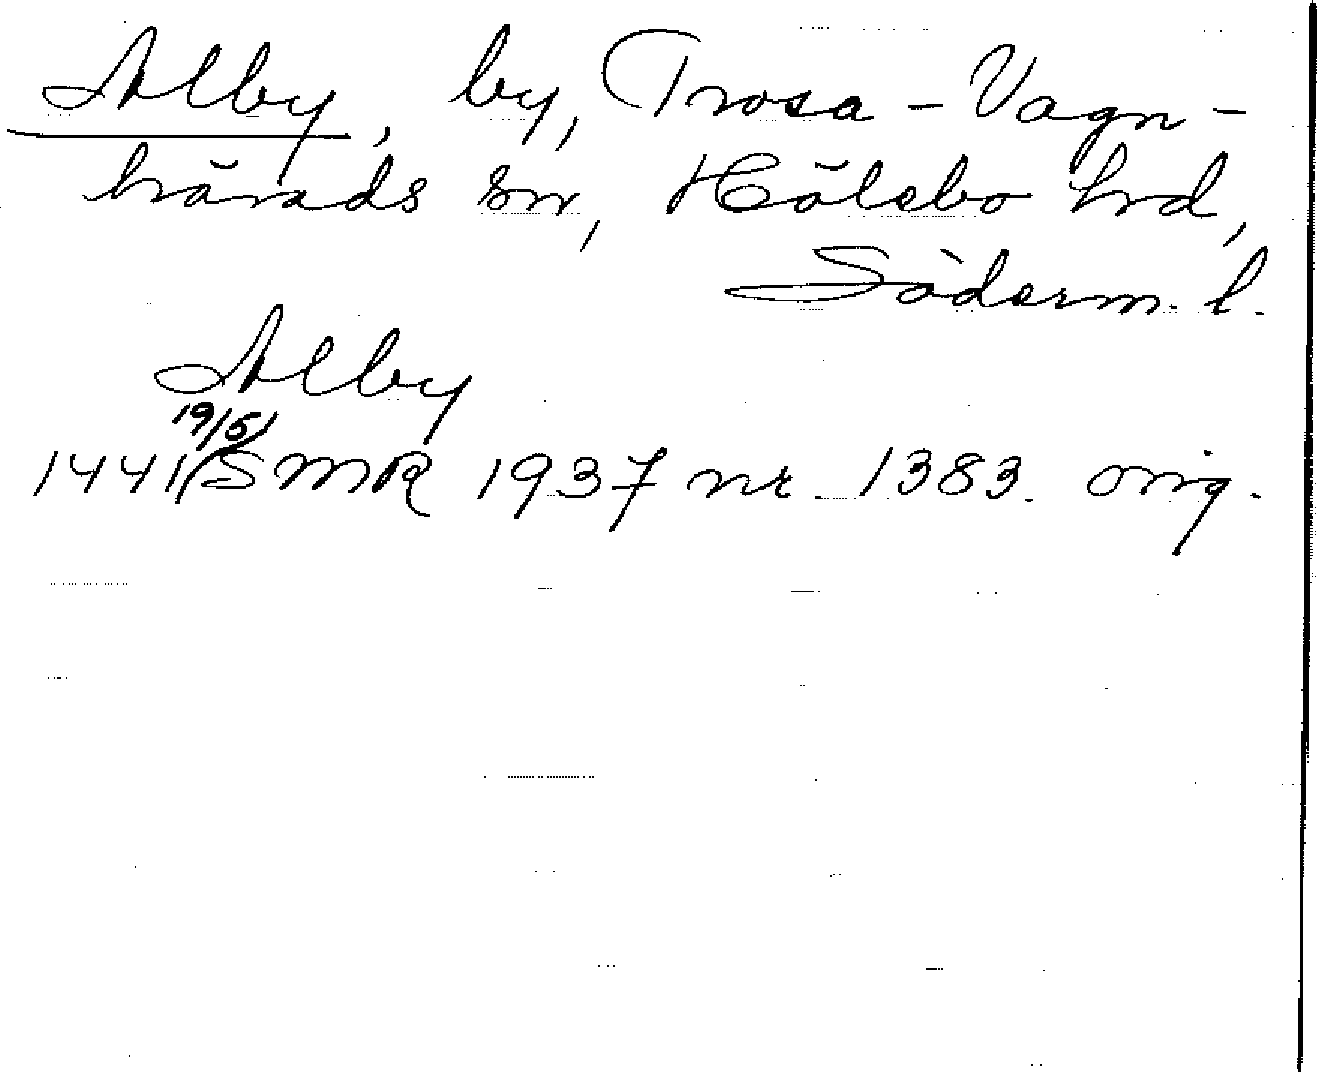 Alby, by, Trosa-Vagn-
härads sn, Hölebo hrd,
Söderm. l.
Alby
19/5
1441 (SMR 1937 nr 1383. orig.